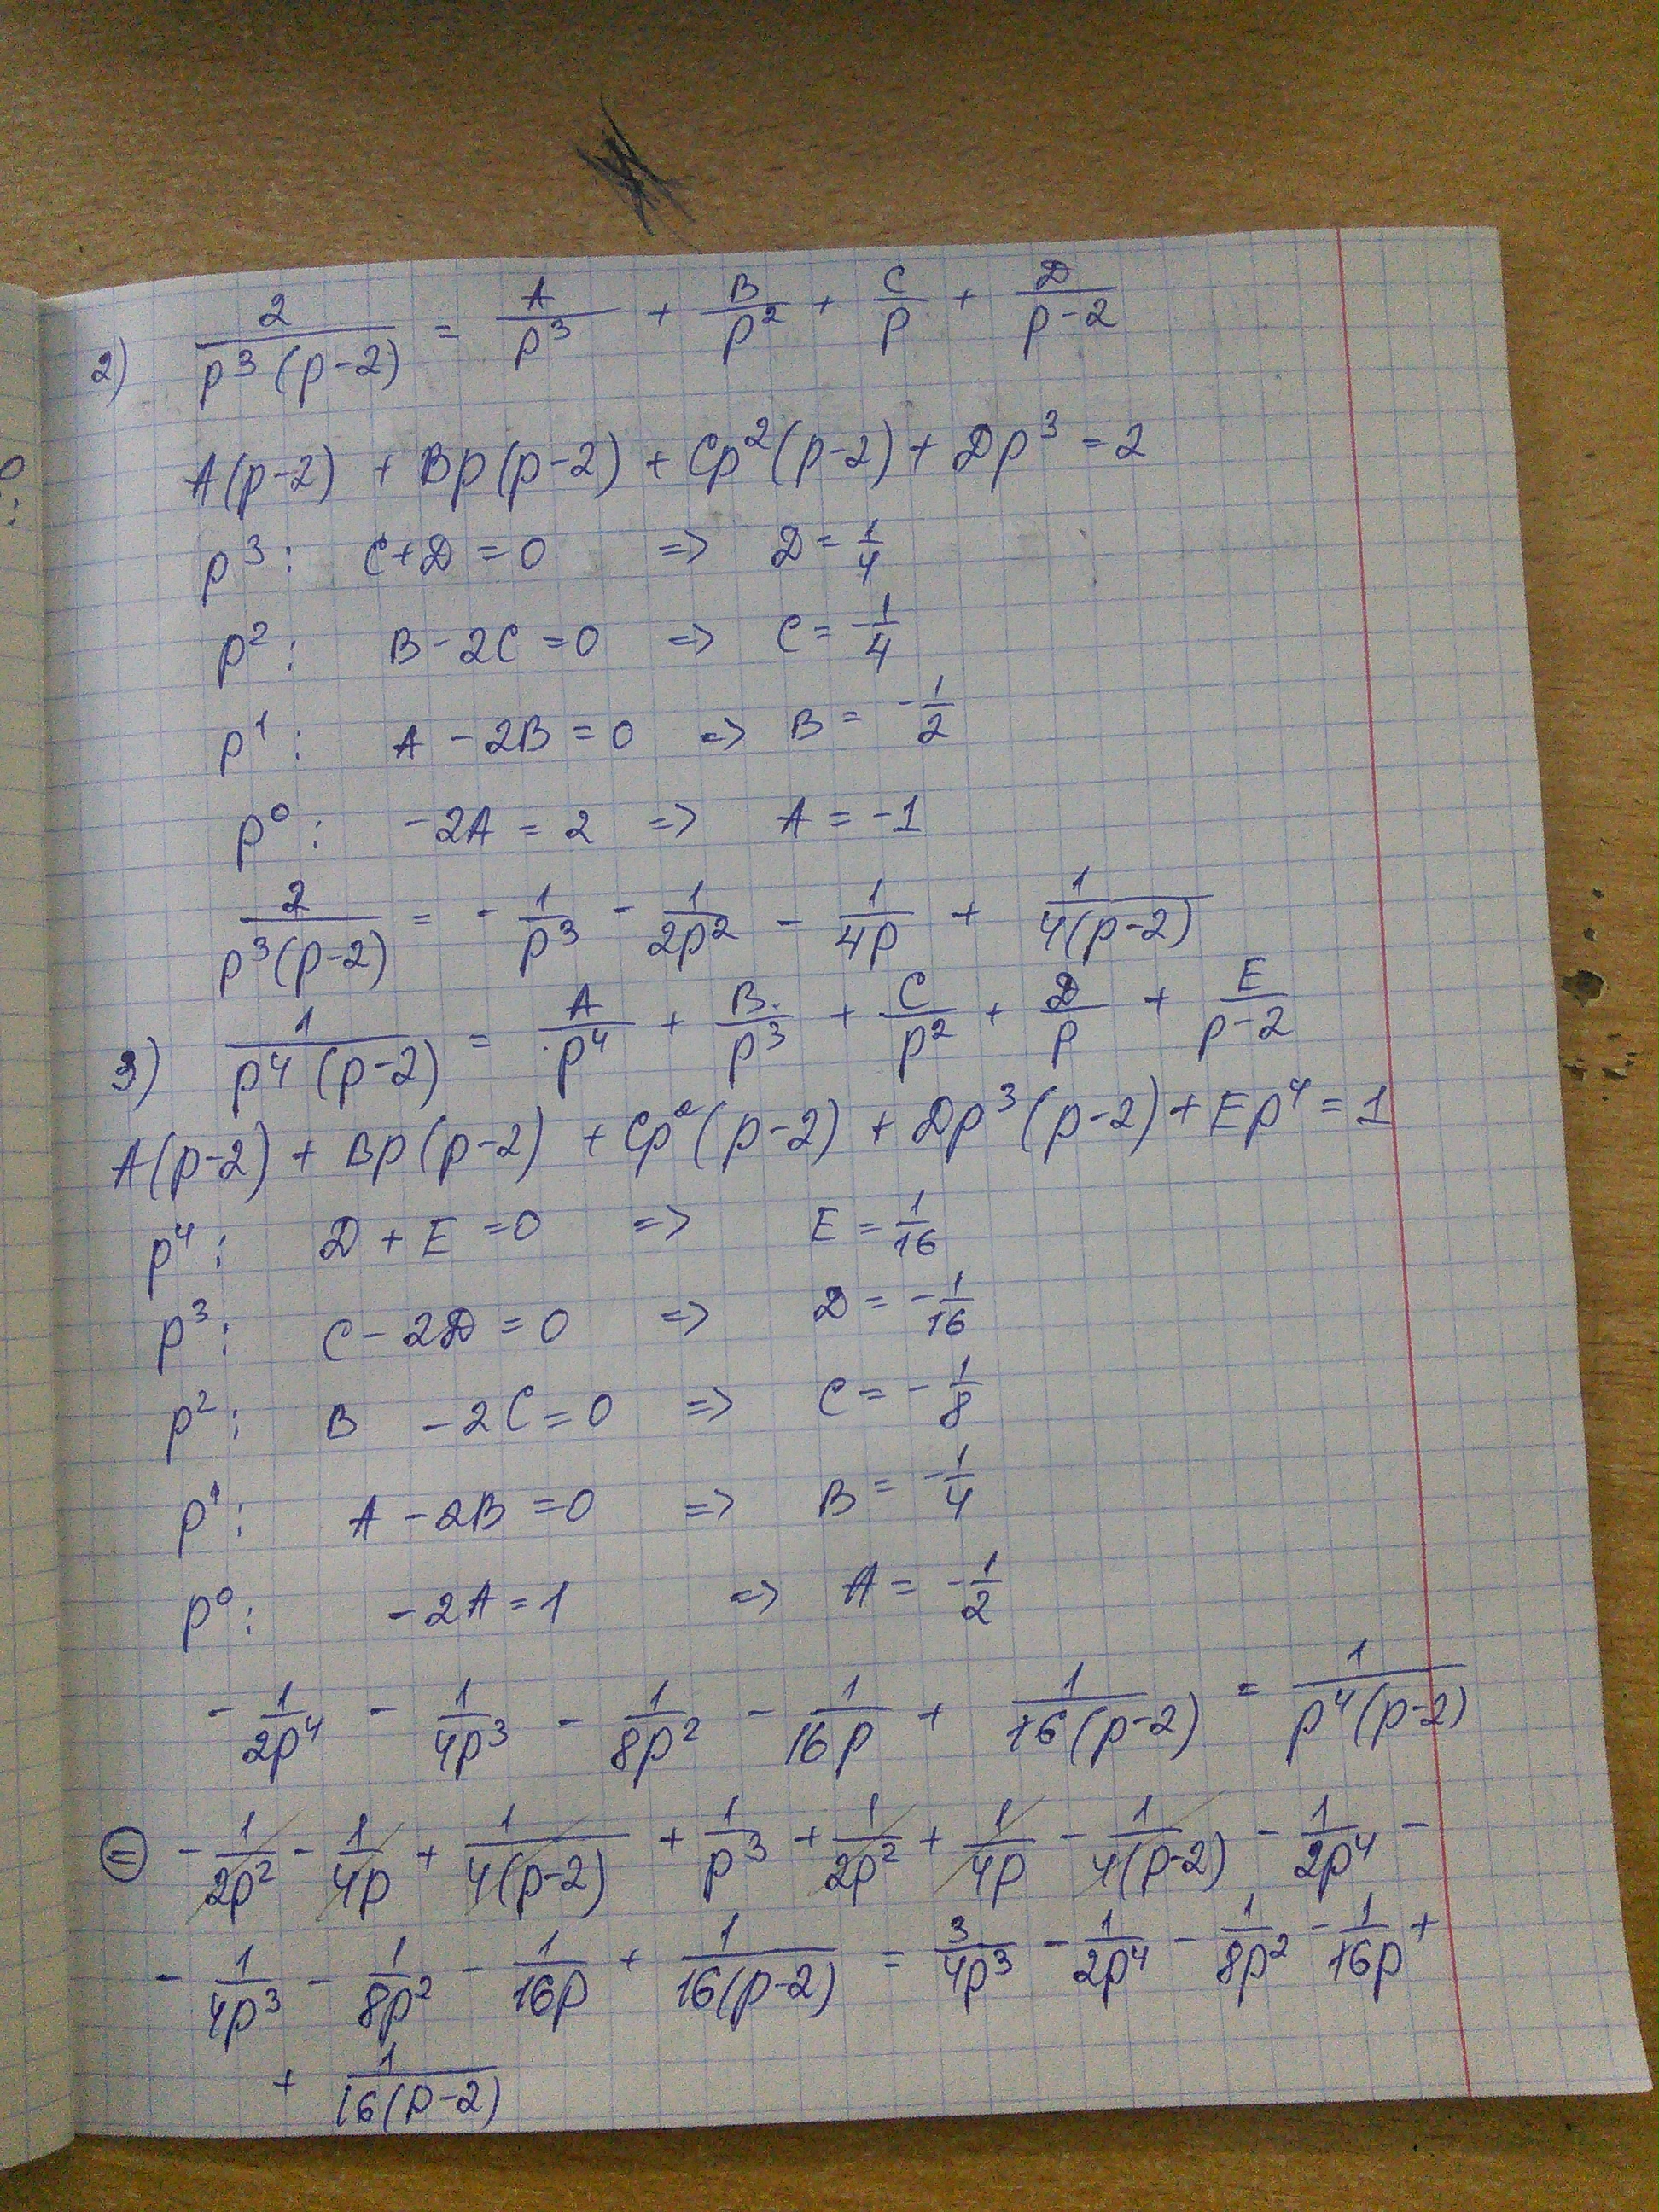 2) 2/(p³(p-2)) = A/p³ + B/p² + C/p + D/(p-2)
A(p-2) + Bp(p-2) + Cp²(p-2) + Dp³ = 2
p³: C+D=0 => D = 1/4
p²: B-2C=0 => C = -1/4
p¹: A-2B=0 => B = -1/2
p⁰: -2A = 2 => A = -1
2/(p³(p-2)) = - 1/p³ - 1/(2p²) - 1/(4p) + 1/(4(p-2))
3) 1/(p⁴(p-2)) = A/p⁴ + B/p³ + C/p² + D/p + E/(p-2)
A(p-2) + Bp(p-2) + Cp²(p-2) + Dp³(p-2) + Ep⁴ = 1
p⁴: D + E = 0 => E = 1/16
p³: C - 2D = 0 => D = -1/16
p²: B - 2C = 0 => C = -1/8
p¹: A - 2B = 0 => B = -1/4
p⁰: -2A = 1 => A = -1/2
- 1/(2p⁴) - 1/(4p³) - 1/(8p²) - 1/(16p) + 1/(16(p-2)) = 1/(p⁴(p-2))
⊜ - 1/(2p²) - 1/(4p) + 1/(4(p-2)) + 1/p³ + 1/(2p²) + 1/(4p) - 1/(4(p-2)) - 1/(2p⁴) -
- 1/(4p³) - 1/(8p²) - 1/(16p) + 1/(16(p-2)) = 3/(4p³) - 1/(2p⁴) - 1/(8p²) - 1/(16p) +
+ 1/(16(p-2))